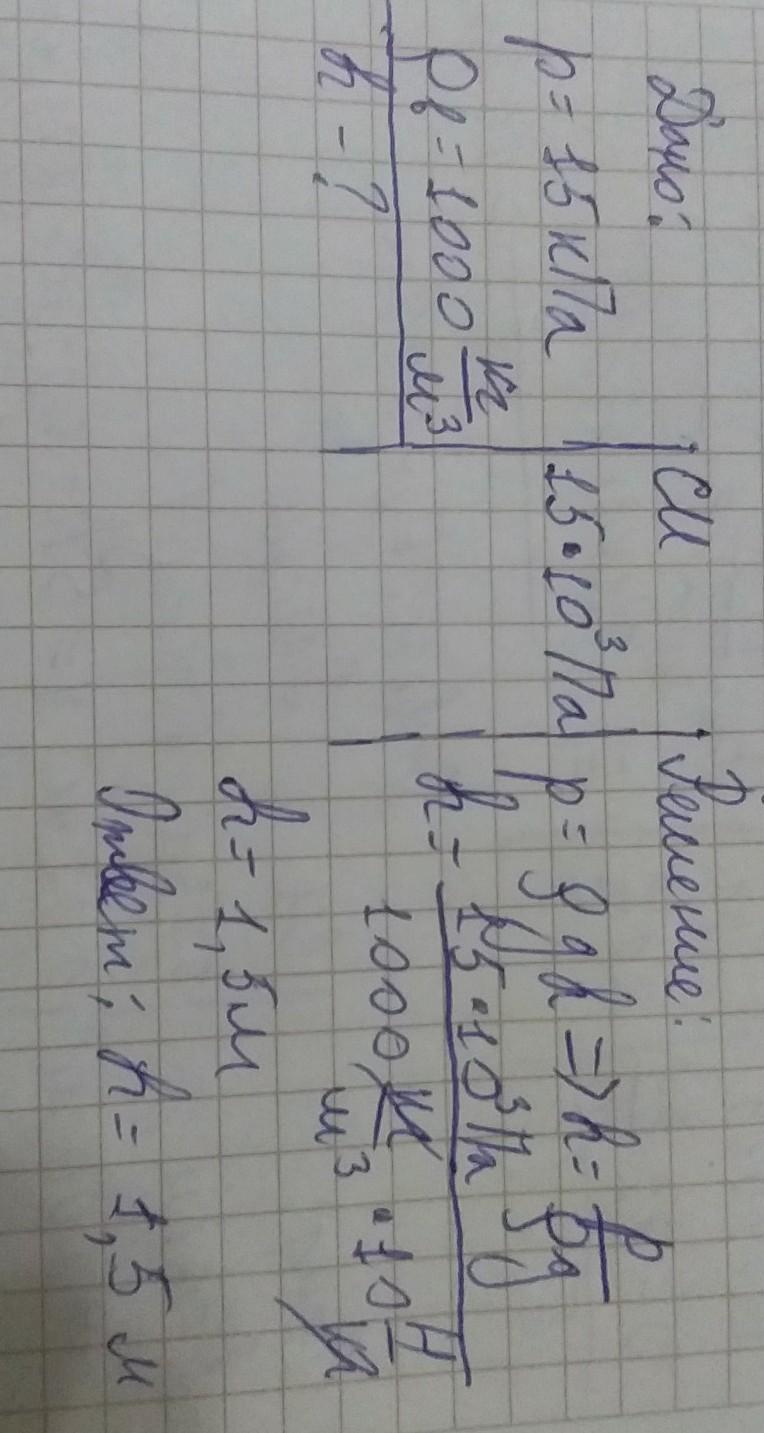 Дано:
p = 15 кПа
ρв = 1000 кг/м³
h - ?
СИ
15 · 10³ Па
Решение:
p = ρgh => h = p/ρg
h = 15 · 10³ Па / 1000 кг/м³ · 10 Н/кг
h = 1,5 м
Ответ: h = 1,5 м